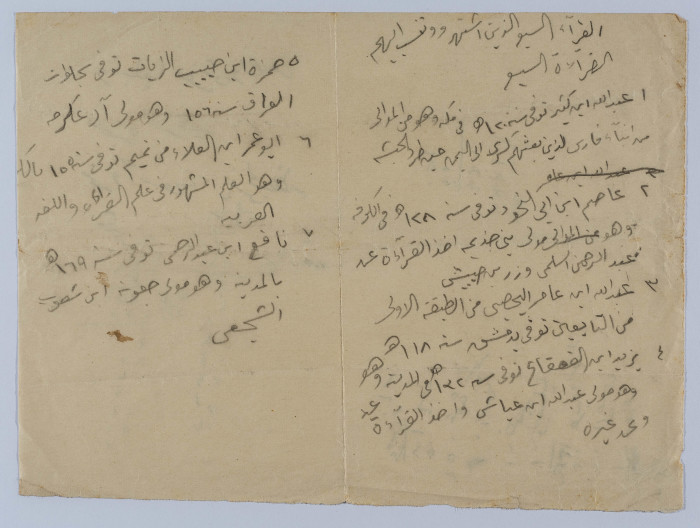 القرآء السبع الذين اشتهروا ونسب اليهم
القرآءة السبع
١ عبدالله ابن كثير توفى سنة ١٢٠ھ في مكه وهو من الموالى
من ابناء فارس الذين بعثهم كسرى الى اليمن حين طرد الحبشه
٢ عاصم ابن ابي النجود توفى سنه ١٢٨ھ في الكوفه
وهو من الموالى مولى بني خذيمه اخذ القرآءة عن
عبد الرحمن السلمي وزر بن حبيش
٣ عبدالله ابن عامر اليحصبى من الطبقة الاولى
من التابعين توفى بدمشق سنه ١١٨ھ
٤ يزيد ابن القعقاع توفى سنه ١٣٢ھ في المدينه وهو
وهو مولى عبدالله ابن عياش واخذ القرآءة عن
وعن غيره
٥ حمزة ابن حبيب الزيات توفى بحلوان
العراق سنه ١٥٦ وهو مولى آل عكرمه
٦ ابو عمر ابن العلاء من تميم توفى سنه ١٥٥
وهو العلم المشهور في علم القرآءه واللغه
العربيه
٧ نافع ابن عبد الرحمن توفى سنه ١٦٩ھ
بالمدينه وهو مولى جعونه ابن شعوب
الشجعى